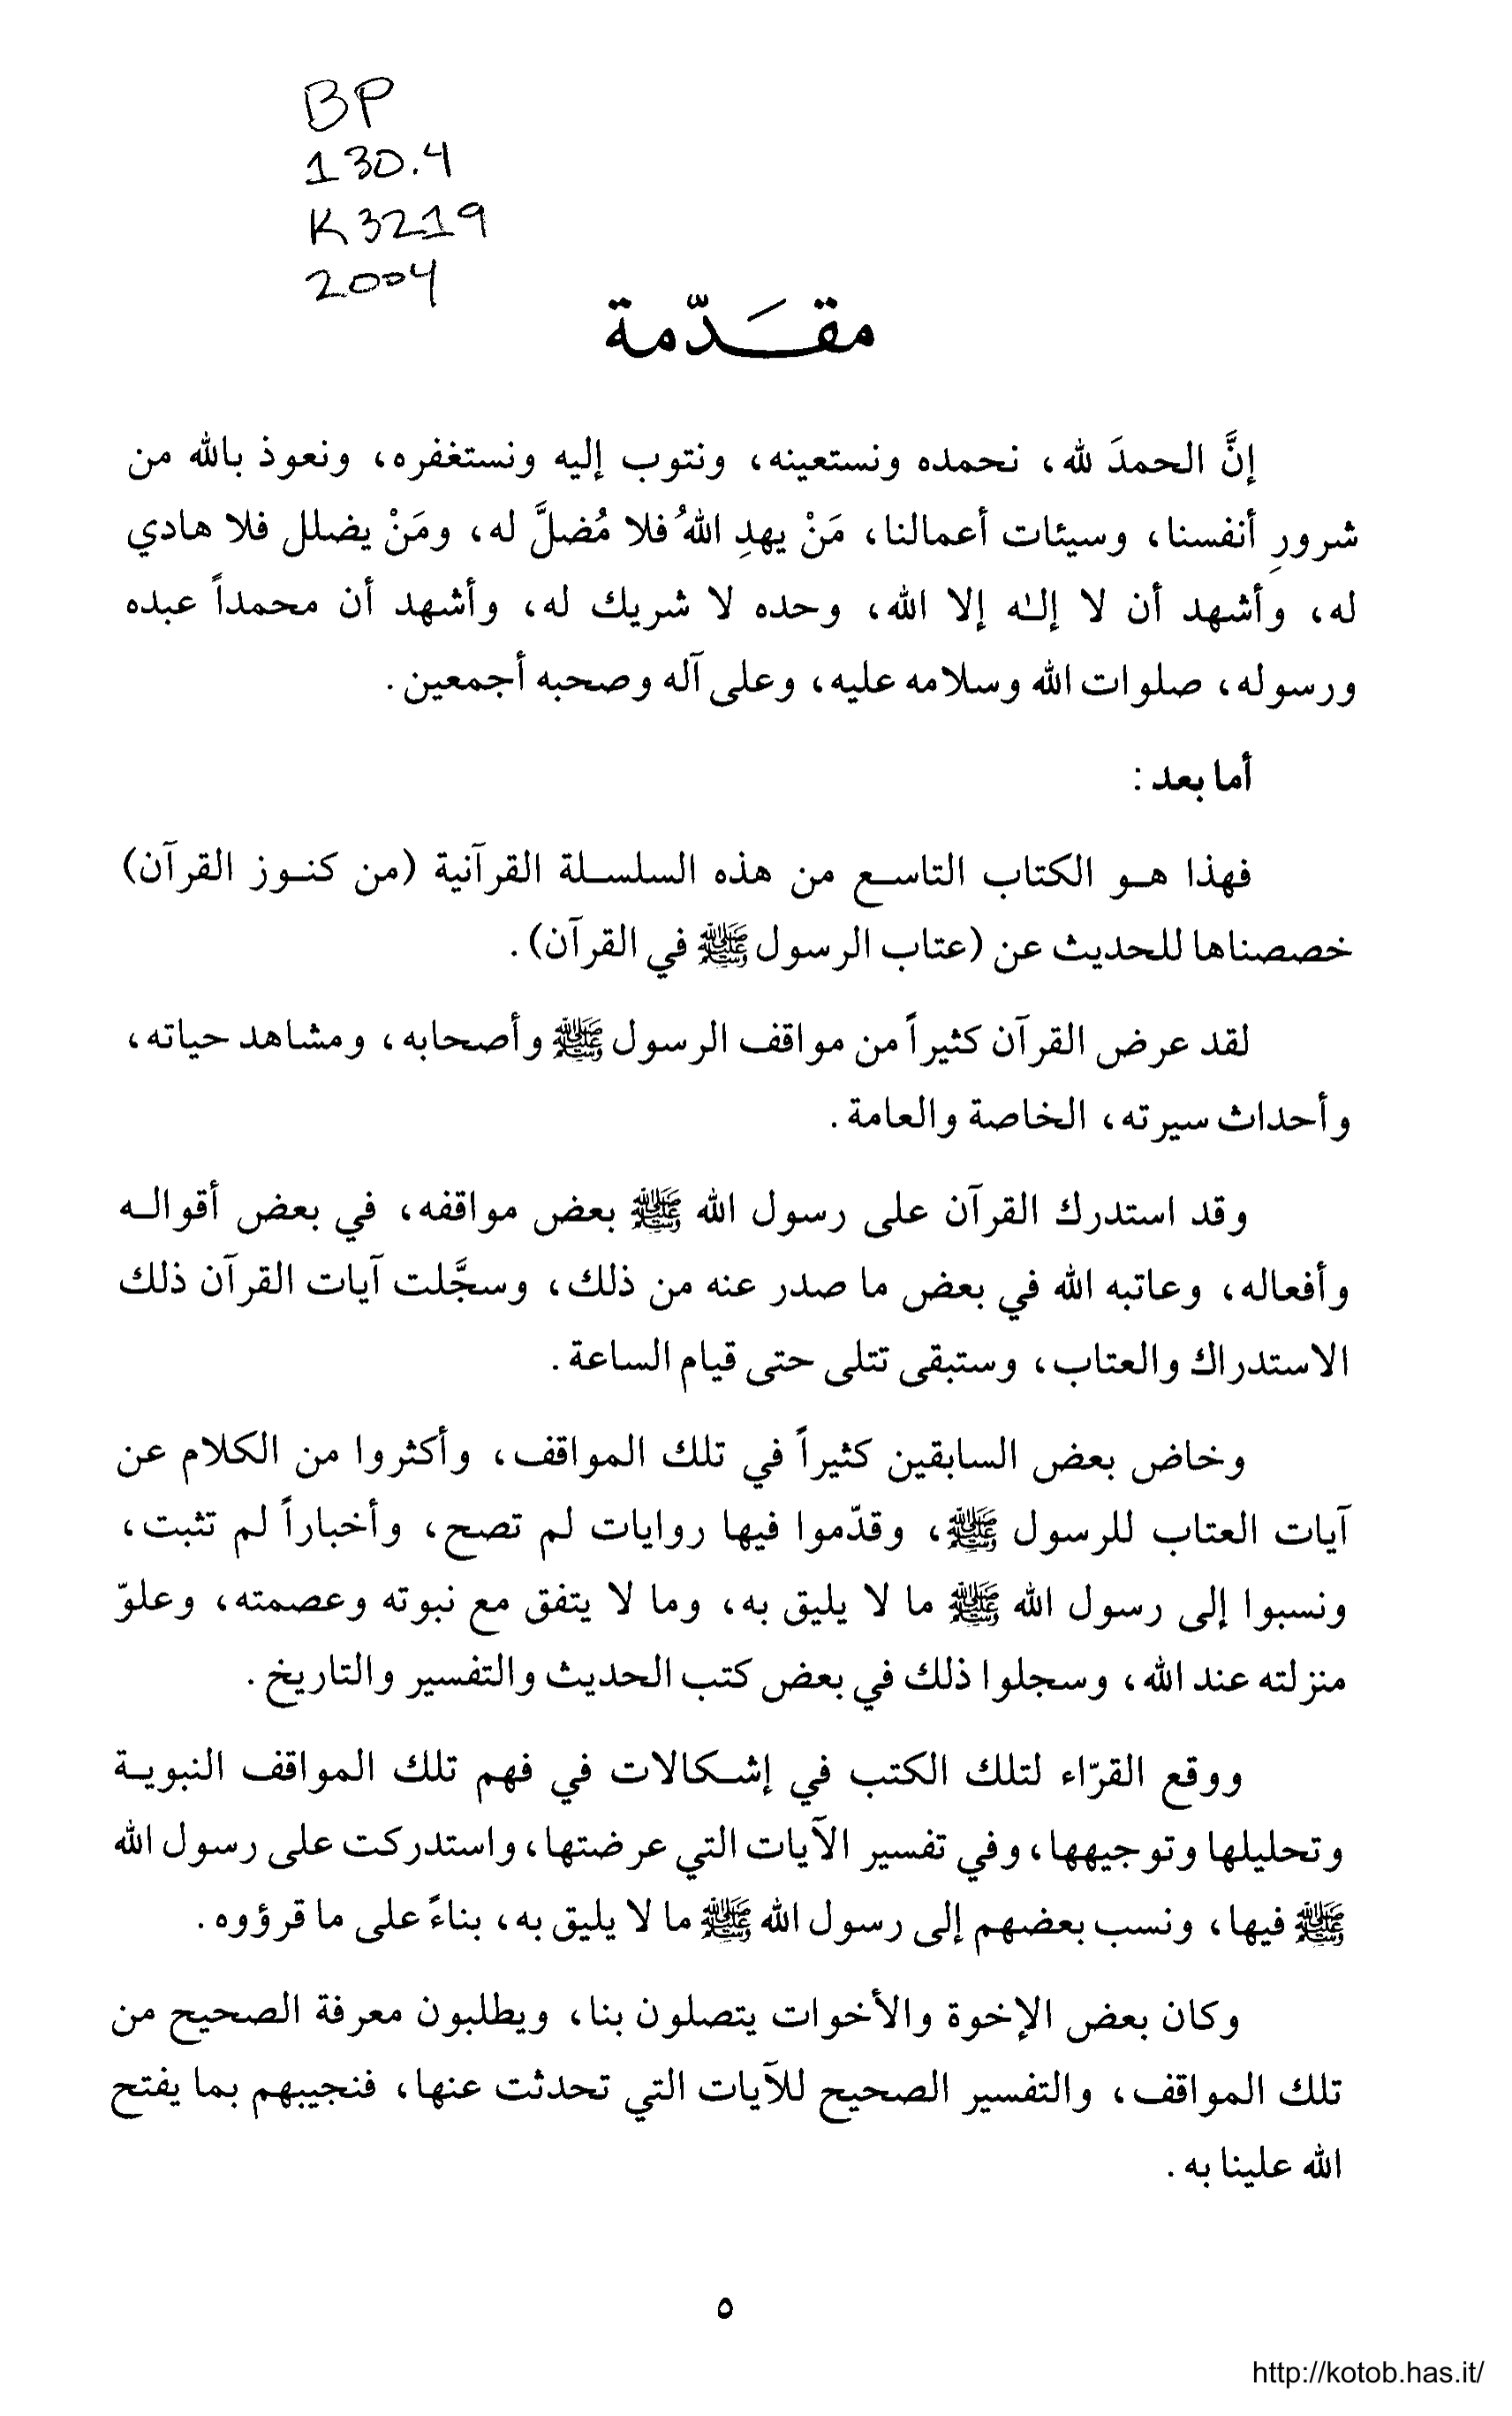 BP
130.4
K3219
2004
مقَدّمة
إنَّ الحمدَ لله، نحمده ونستعينه، ونتوب إليه ونستغفره، ونعوذ بالله من
شرورِ أنفسنا، وسيئات أعمالنا، مَنْ يهدِ اللهُ فلا مُضلَّ له، ومَنْ يضلل فلا هادي
له، وأشهد أن لا إلـٰه إلا الله، وحده لا شريك له، وأشهد أن محمداً عبده
ورسوله، صلوات الله وسلامه عليه، وعلى آله وصحبه أجمعين.
أما بعد:
فهذا هو الكتاب التاسع من هذه السلسلة القرآنية (من كنوز القرآن)
خصصناها للحديث عن (عتاب الرسول ﷺ في القرآن).
لقد عرض القرآن كثيراً من مواقف الرسول ﷺ وأصحابه، ومشاهد حياته،
وأحداث سيرته، الخاصة والعامة.
وقد استدرك القرآن على رسول الله ﷺ بعض مواقفه، في بعض أقواله
وأفعاله، وعاتبه الله في بعض ما صدر عنه من ذلك، وسجَّلت آيات القرآن ذلك
الاستدراك والعتاب، وستبقى تتلى حتى قيام الساعة.
وخاض بعض السابقين كثيراً في تلك المواقف، وأكثروا من الكلام عن
آيات العتاب للرسول ﷺ، وقدّموا فيها روايات لم تصح، وأخباراً لم تثبت،
ونسبوا إلى رسول الله ﷺ ما لا يليق به، وما لا يتفق مع نبوته وعصمته، وعلوّ
منزلته عند الله، وسجلوا ذلك في بعض كتب الحديث والتفسير والتاريخ.
ووقع القرّاء لتلك الكتب في إشكالات في فهم تلك المواقف النبوية
وتحليلها وتوجيهها، وفي تفسير الآيات التي عرضتها، واستدركت على رسول الله
ﷺ فيها، ونسب بعضهم إلى رسول الله ﷺ ما لا يليق به، بناءً على ما قرؤوه.
وكان بعض الإخوة والأخوات يتصلون بنا، ويطلبون معرفة الصحيح من
تلك المواقف، والتفسير الصحيح للآيات التي تحدثت عنها، فنجيبهم بما يفتح
الله علينا به.
٥
http://kotob.has.it/